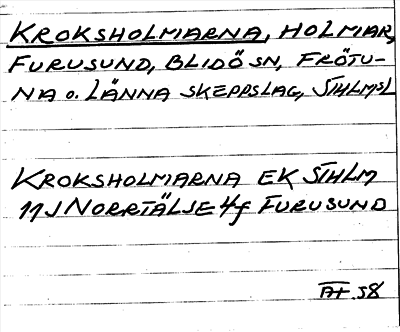 KROKSHOLMARNA, HOLMAR,
FURUSUND, BLIDÖ SN, FRÖTU-
NA o. LÄNNA SKEPPSLAG, STHLMSL
KROKSHOLMARNA EK STHLM
11J NORRTÄLJE 4f FURUSUND
AT. 58